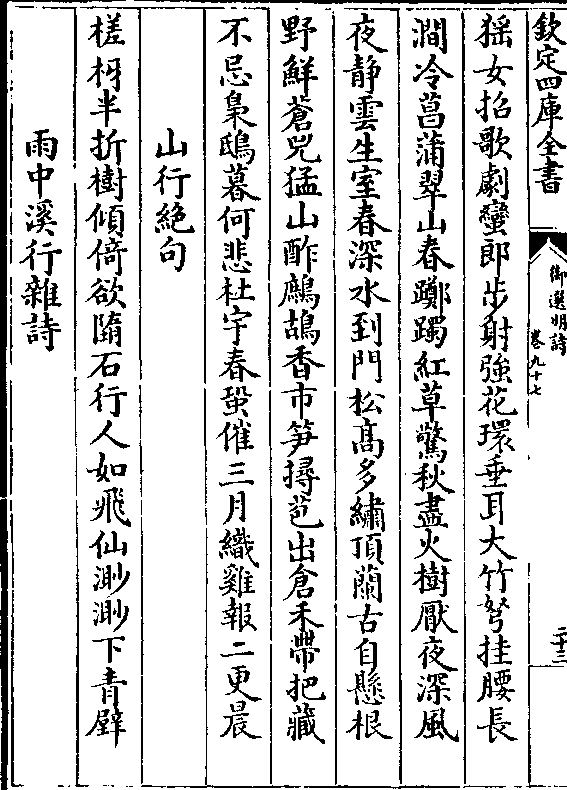 欽定四庫全書
御選明詩
卷九十七
二十三
猺女招歌劇蠻郎步射強花環垂耳大竹弩挂腰長
澗冷菖蒲翠山春躑躅紅草驚秋盡火樹厭夜深風
夜静雲生室春深水到門松髙多繡頂蘭古自懸根
野鮮蒼兕猛山酢鷓鴣香市笋撏苞出倉禾帶把藏
不忌梟鴟暮何悲杜宇春蛩催三月織雞報二更晨
山行絶句
槎枒半折樹傾倚欲隋石行人如飛仙渺渺下青壁
雨中溪行雜詩